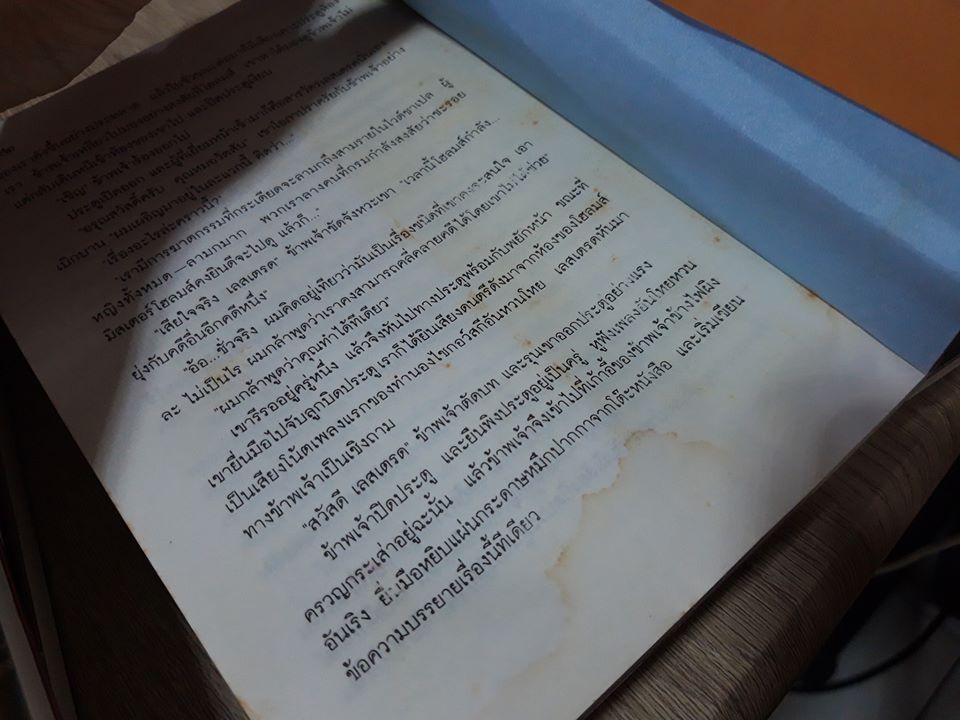 "เชิญ" ข้าพเจ้าร้องออกไป
ประตูเปิดออก
"อรุณสวัสดิ์ครับ คุณหมอวัตสัน"
เบิกบาน "ผมเผอิญมาอยู่ในละแวกนี้ คิดว่า..."
"เรื่องอะไรล่ะคราวนี้?"
"เรามีการฆาตกรรมที่กระเดียดจะลามกถึงสามรายในไวต์ชาเปล ผู้
หญิงทั้งหมด—ลามกมาก พวกเราลางคนที่กรมกำลังสงสัยว่าชะรอย
มิสเตอร์โฮลมส์คงยินดีจะไปดู แล้วก็..."
"เสียใจจริง เลสเตรด" ข้าพเจ้าขัดจังหวะเขา "เวลานี้โฮลมส์กำลัง...
ยุ่งกับคดีอื่นอีกคดีหนึ่ง"
"อ้อ...ชั่วจริง ผมคิดอยู่เทียวว่ามันเป็นเรื่องชนิดที่เขาคงจะสนใจ เอา
ละ ไม่เป็นไร ผมกล้าพูดว่าเราคงสามารถคลี่คลายคดีได้โดยเขาไม่ได้ช่วย"
"ผมกล้าพูดว่าคุณทำได้ทีเดียว"
เขารีรออยู่ครู่หนึ่ง แล้วจึงหันไปทางประตูพร้อมกับพยักหน้า ขณะที่
เขายื่นมือไปจับลูกบิดประตู เราก็ได้ยินเสียงดนตรีดังมาจากห้องของโฮลมส์
เป็นเสียงโน้ตเพลงแรกของทำนองไชกอว์สกีอันหวนโหย เลสเตรดหันมา
ทางข้าพเจ้าเป็นเชิงถาม
"สวัสดี เลสเตรด" ข้าพเจ้าตัดบท และรุนเขาออกประตูอย่างแรง
ข้าพเจ้าปิดประตู และยืนพิงประตูอยู่เป็นครู่ หูฟังเพลงอันโหยหวน
ครวญกระเส่าอยู่ฉะนั้น แล้วข้าพเจ้าจึงเข้าไปที่เก้าอี้ของข้าพเจ้าข้างไฟผิง
อันเริง ยื่นมือหยิบแผ่นกระดาษหมึกปากกาจากโต๊ะหนังสือ และเริ่มเขียน
ข้อความบรรยายเรื่องนี้ทีเดียว